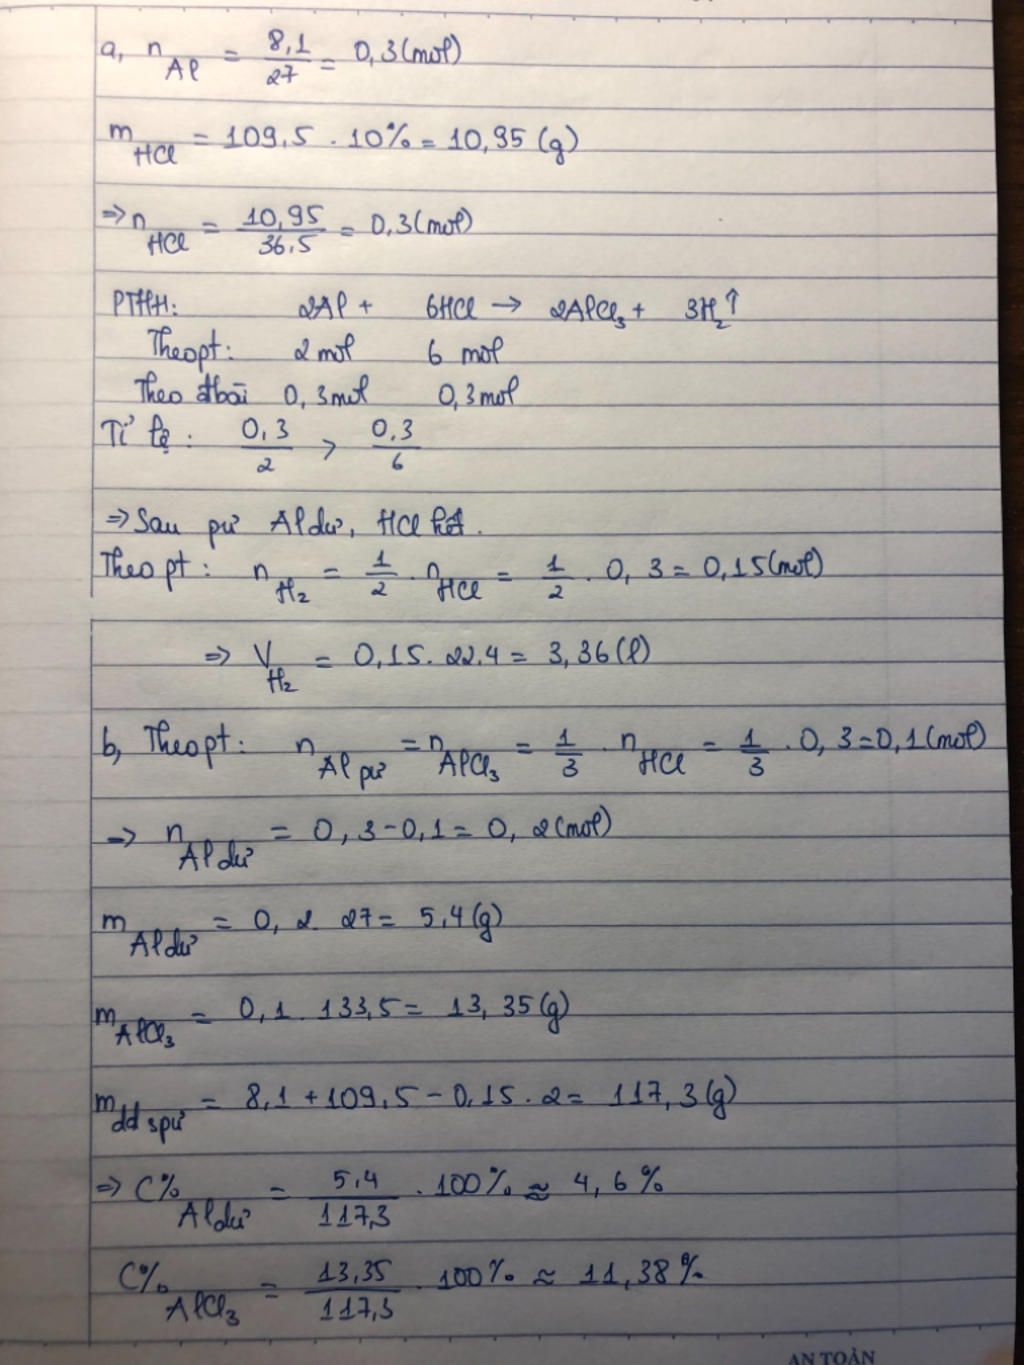 a, n Al = 8,1/27 = 0,3(mol)
m HCl = 109,5 . 10% = 10,95 (g)
=> n HCl = 10,95/36,5 = 0,3(mol)
PTHH: 2Al + 6HCl → 2AlCl3 + 3H2↑
Theo pt: 2 mol 6 mol
Theo đbài 0,3mol 0,3mol
Tỉ lệ : 0,3/2 > 0,3/6
=> Sau pư Al dư, HCl hết.
Theo pt : n H2 = 1/2 . n HCl = 1/2 . 0,3 = 0,15(mol)
=> V H2 = 0,15. 22.4 = 3,36 (l)
b, Theo pt: n Al pư = n AlCl3 = 1/3 . n HCl = 1/3 . 0,3=0,1(mol)
=> n Al dư = 0,3-0,1= 0,2(mol)
m Al dư = 0,2. 27= 5,4(g)
m AlCl3 = 0,1. 133,5= 13,35(g)
m dd spư = 8,1+109,5-0,15.2= 117,3(g)
=> C% Al dư = 5,4/117,3 . 100% ≈ 4,6%
C% AlCl3 = 13,35/117,3 . 100% ≈ 11,38%
AN TOÀN